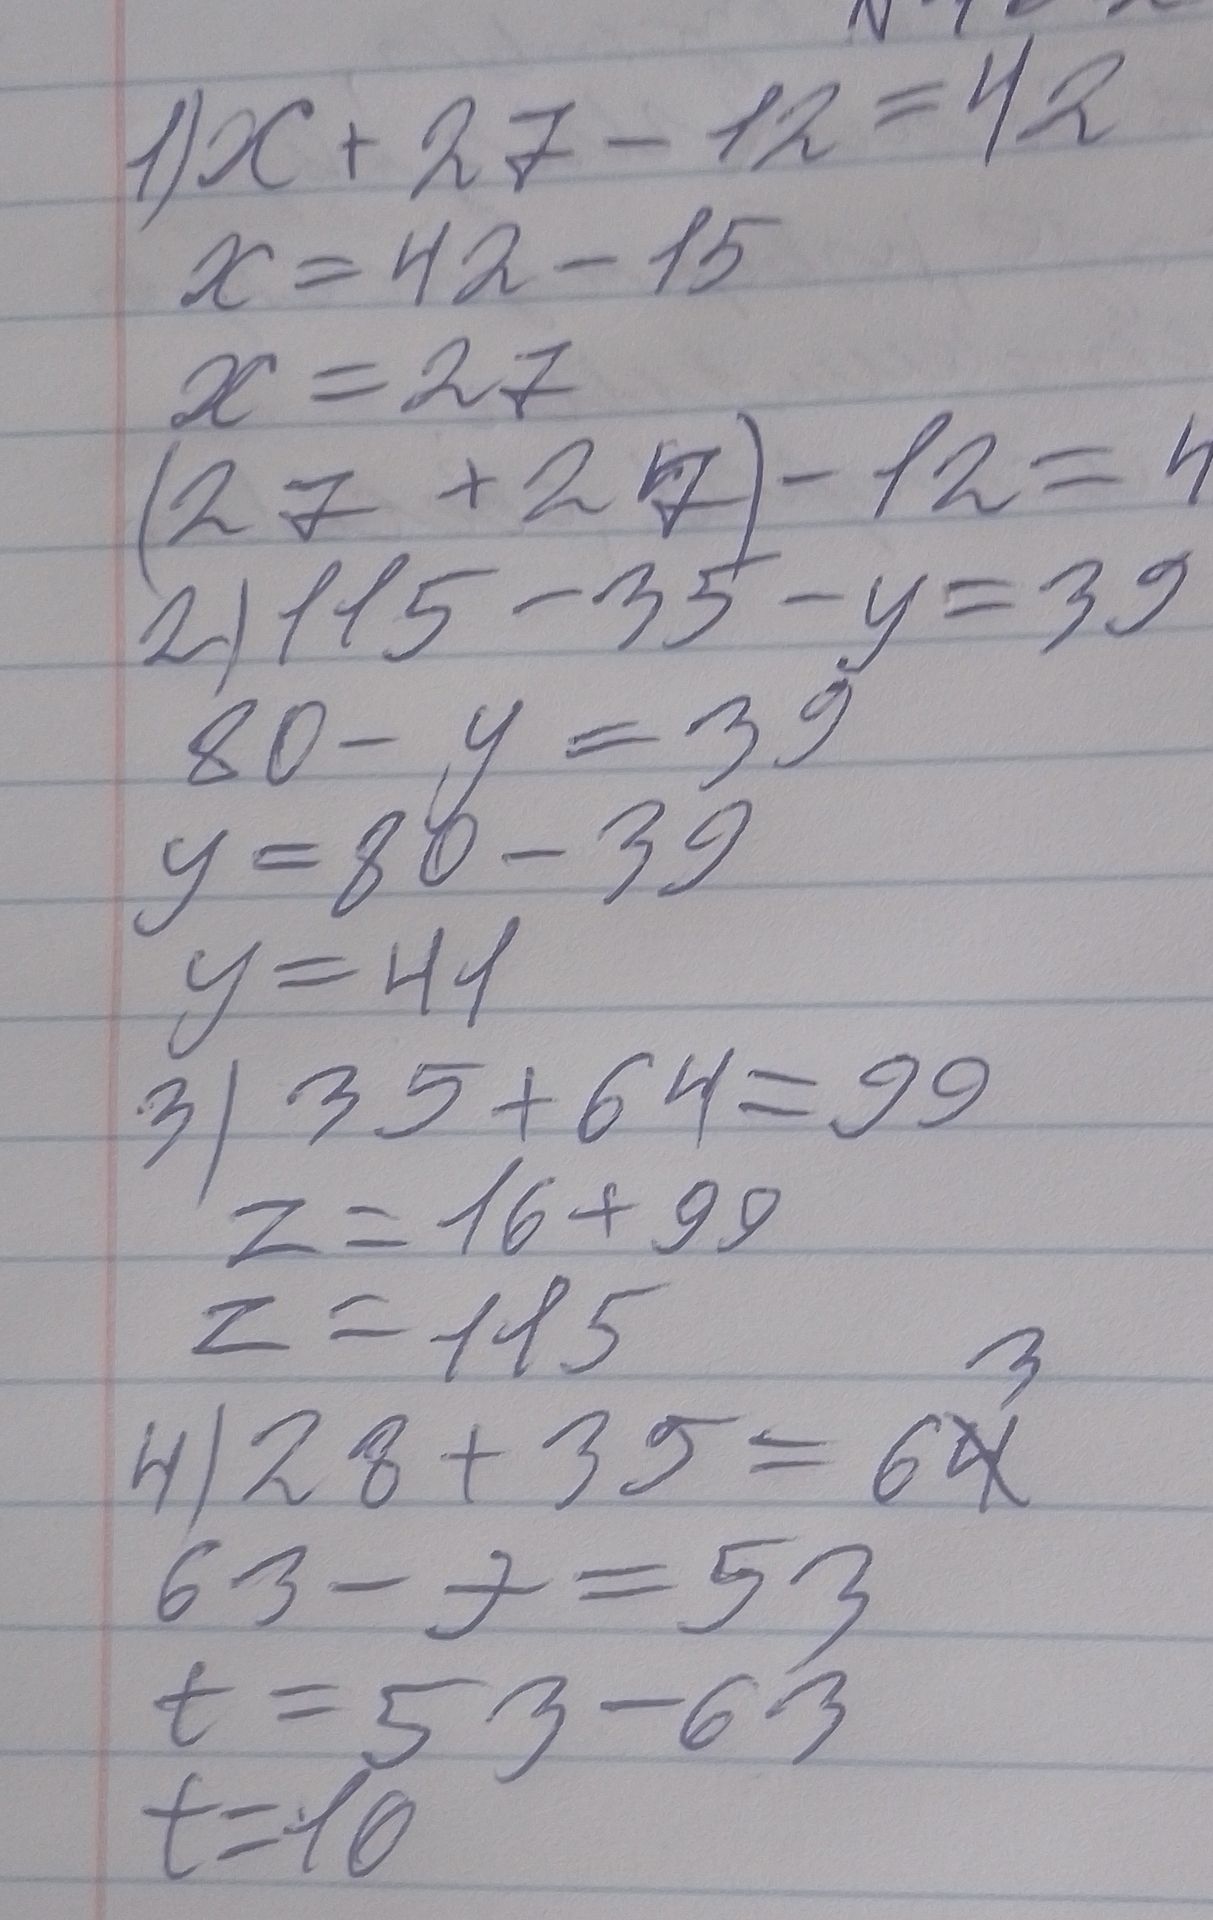 1) x + 27 - 12 = 42
x = 42 - 15
x = 27
(27 + 27) - 12 = 4
2) 115 - 35 - y = 39
80 - y = 39
y = 80 - 39
y = 41
3) 35 + 64 = 99
z = 16 + 99
z = 115
3
4) 28 + 35 = 64
63 - t = 53
t = 53 - 63
t = 10